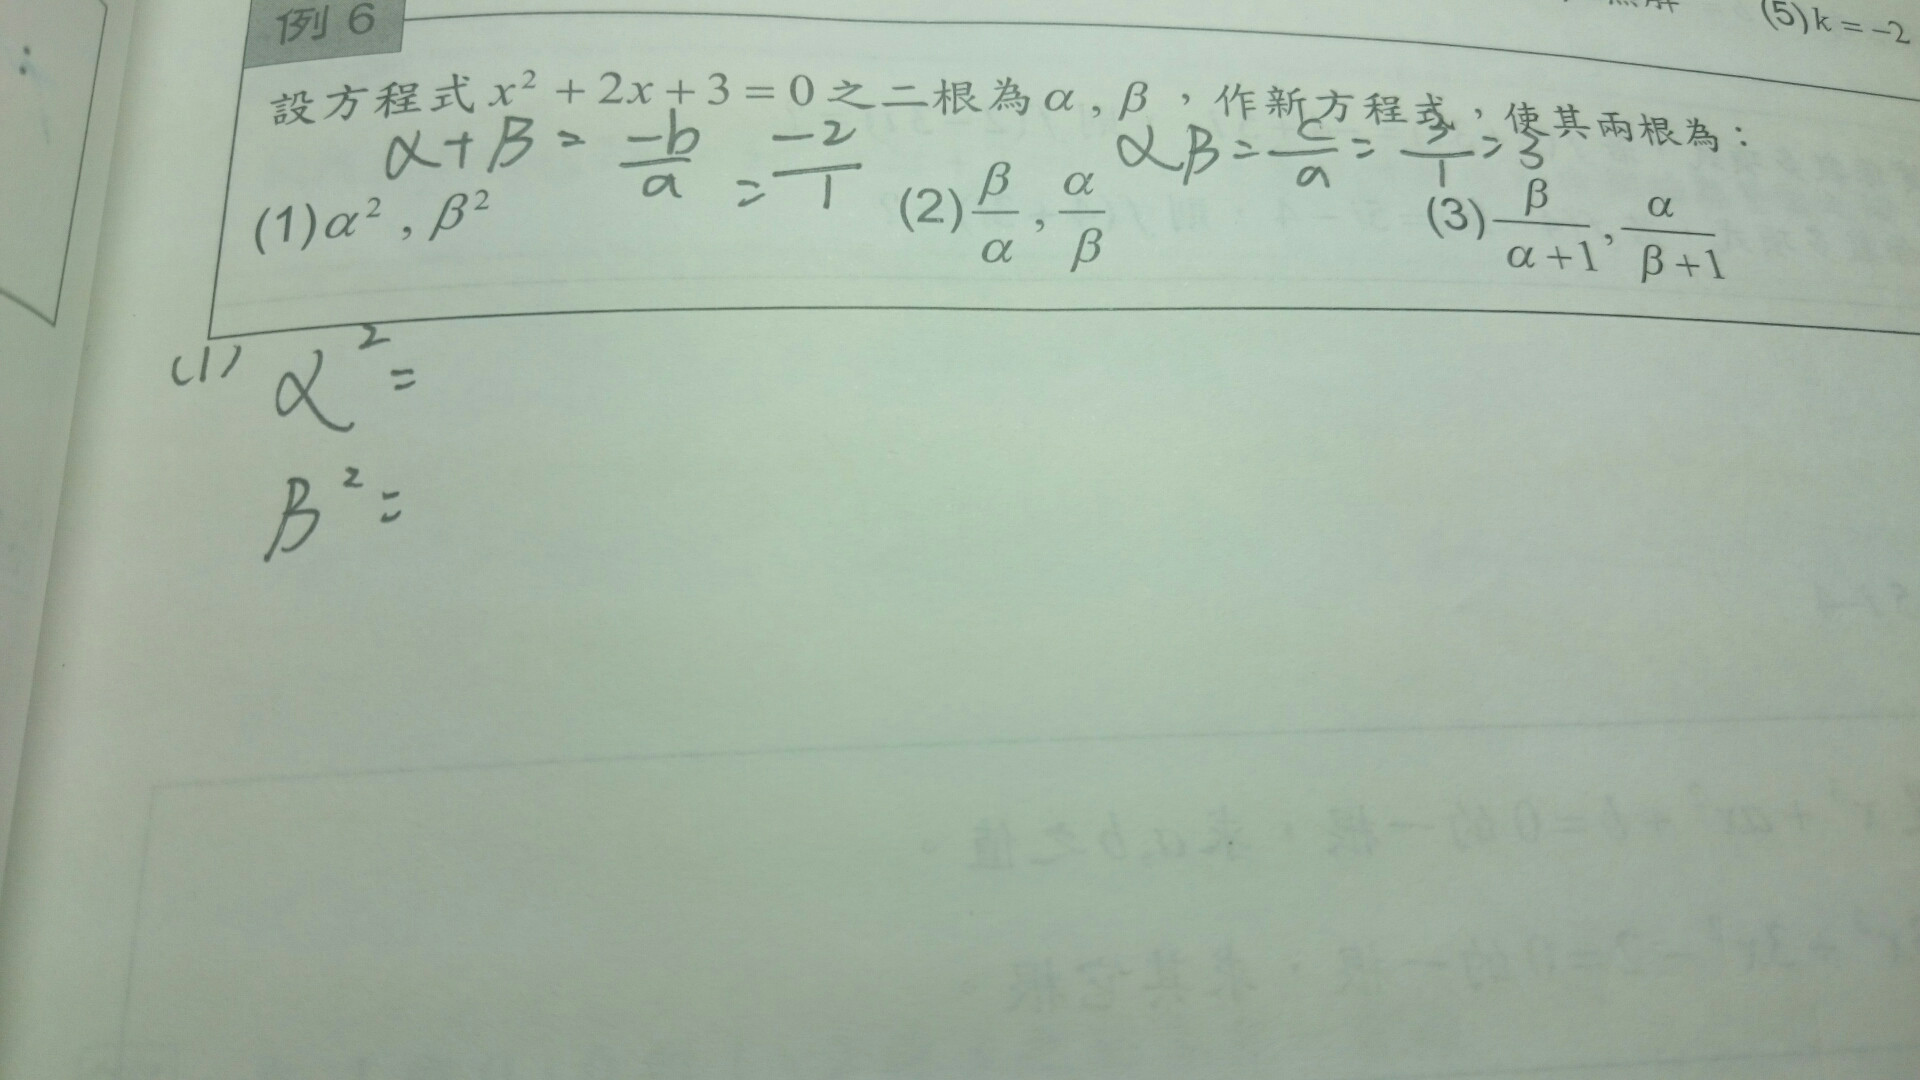 (5) k = -2
例 6
設方程式 x² + 2x + 3 = 0 之二根為 α , β ，作新方程式，使其兩根為：
α + β = -b/a = -2/1 αβ = c/a = 3/1 = 3
(1) α² , β² (2) β/α , α/β (3) β/(α+1) , α/(β+1)
(1) α² =
β² =